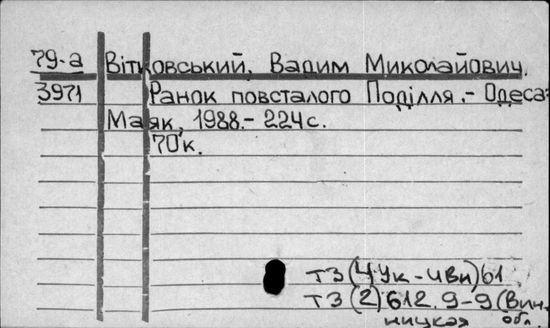 79-а Вітковський, Вадим Миколайович.
3971 Ранок повсталого Поділля.- Одеса:
Маяк, 1988.- 224с.
70к.
тЗ(4Ук-4Вн)61
тЗ(2)612.9-9(Вин.
ницкая обл